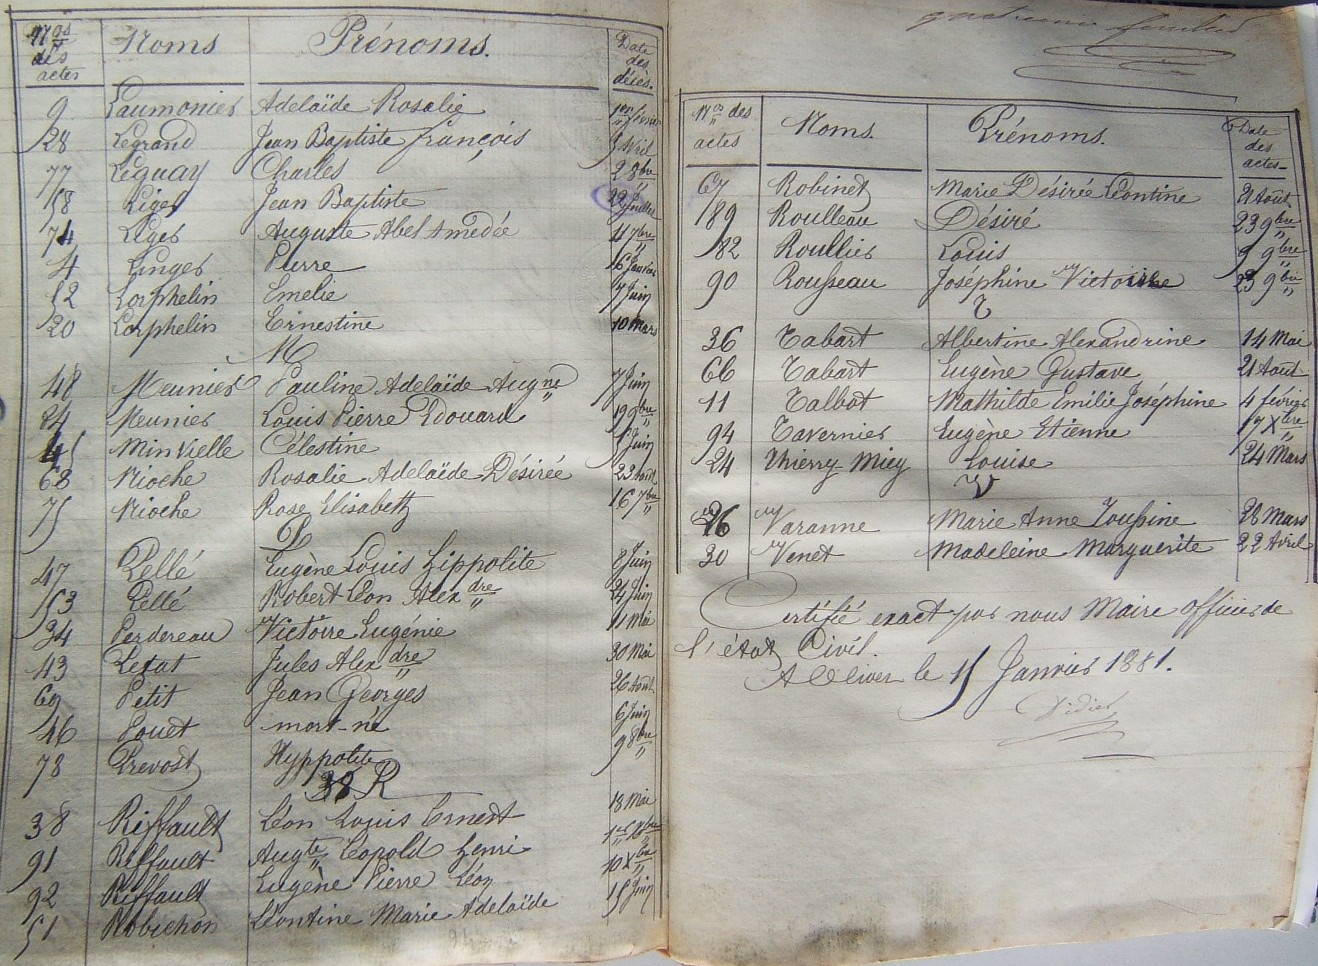 Nos des actes Noms Prénoms. Date des décès.
9 Laumonier Adelaïde Rosalie 1er février
28 Legrand Jean Baptiste françois Avril
77 Leguay Charles 2 8bre
58 Liger Jean Baptiste 22 Juillet
74 Liger Auguste Abel Amedée 4 7bre
4 Linger Pierre 16 Janvier
52 Lorphelin Emelie 7 Juin
20 Lorphelin Ernestine 10 Mars
M
48 Meunier Pauline Adelaïde Augne 7 Juin
84 Meunier Louis Pierre Edouard 19 9bre
45 Minvielle Célestine Juin
68 Nioche Rosalie Adelaïde Désirée 23 Août
75 Nioche Rose Elisabeth 16 7bre
P
47 Pellé Eugène Louis Hippolite 8 Juin
53 Pellé Robert Léon Alexdre 24 Juin
34 Perdereau Victoire Eugénie 11 Mai
43 Petat Jules Alexdre 30 Mai
69 Petit Jean Georges 26 Août
46 Pouet mort-né 6 Juin
78 Prevost Hyppolite 9 8bre
38 R
38 Riffault Léon Louis Ernest 18 Mai
91 Riffault Augte Léopold Henri 1er Xbre
92 Riffault Eugène Pierre Léon 10 Xbre
51 Robichon Léontine Marie Adelaïde 15 Juin
quatrieme feuillet
Nos des actes Noms. Prénoms. Date des actes
67 Robinet Marie Désirée Léontine 21 Août
89 Roulleau Désiré 23 9bre
82 Roullier Louis 9 9bre
90 Rousseau Joséphine Victoire 23 9bre
T
36 Tabart Albertine Alexandrine 14 Mai
66 Tabart Eugène Gustave 21 Août
11 Talbot Mathilde Emilie Joséphine 4 février
94 Tavernier Eugène Etienne 17 Xbre
24 Thierry-Mieg Louise 24 Mars
V
26 Varanne Marie Anne Toussine 28 Mars
30 Venet Madeleine Marguerite 22 Avril
Certifié exact par nous Maire officier de
l'état Civil.
A le 15 Janvier 1881.
Didier